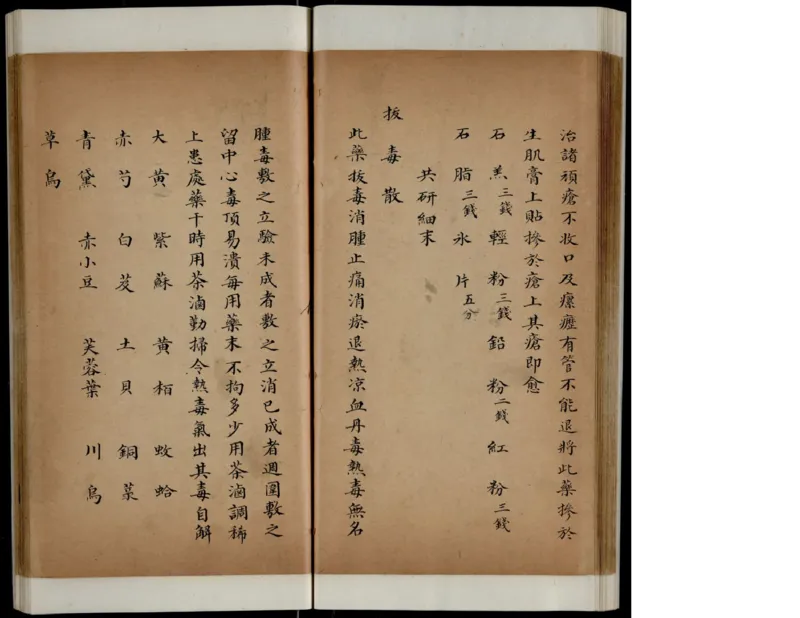 治諸頑瘡不收口及瘰癧有管不能退將此藥摻於
生肌膏上貼摻於瘡上其瘡即愈
石羔三錢 輕粉三錢 鉛粉二錢 紅粉三錢
石脂三錢 氷片五分
共研細末
拔毒散
此藥拔毒消腫止痛消瘀退熱凉血丹毒熱毒無名
腫毒敷之立驗未成者敷之立消已成者週圍敷之
留中心毒頂易潰每用藥末不拘多少用茶滷調稀
上患處藥干時用茶滷勤掃令熱毒氣出其毒自解
大黃 紫蘇 黃栢 蚊蛤
赤芍 白芨 土貝 銅菉
青黛 赤小豆 芙蓉葉 川烏
草烏